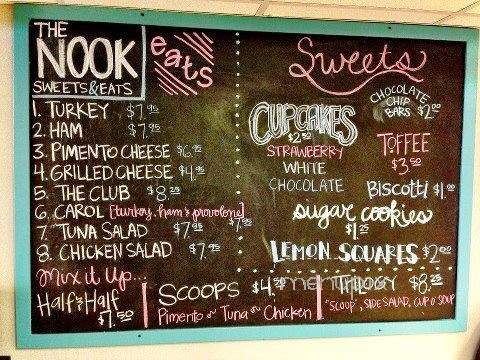 THE
NOOK
SWEETS&EATS
eats
1. TURKEY $7.95
2. HAM $7.95
3. PIMENTO CHEESE $6.95
4. GRILLED CHEESE $4.95
5. THE CLUB $8.25
6. CAROL [turkey, ham & provolone] $7.95
7. TUNA SALAD $7.95
8. CHICKEN SALAD $7.95
Mix it Up...
Half & Half
$7.50
SCOOPS $4.50
Pimento ~ Tuna ~ Chicken
Sweets
CHOCOLATE
CHIP
BARS $2.00
CUPCAKES
$2.50
STRAWBERRY
WHITE
CHOCOLATE
TOFFEE
$3.50
Biscotti $1.00
sugar cookies
$1.25
LEMON SQUARES $2.00
TRILOGY $8.25
"SCOOP", SIDE SALAD, CUP O' SOUP